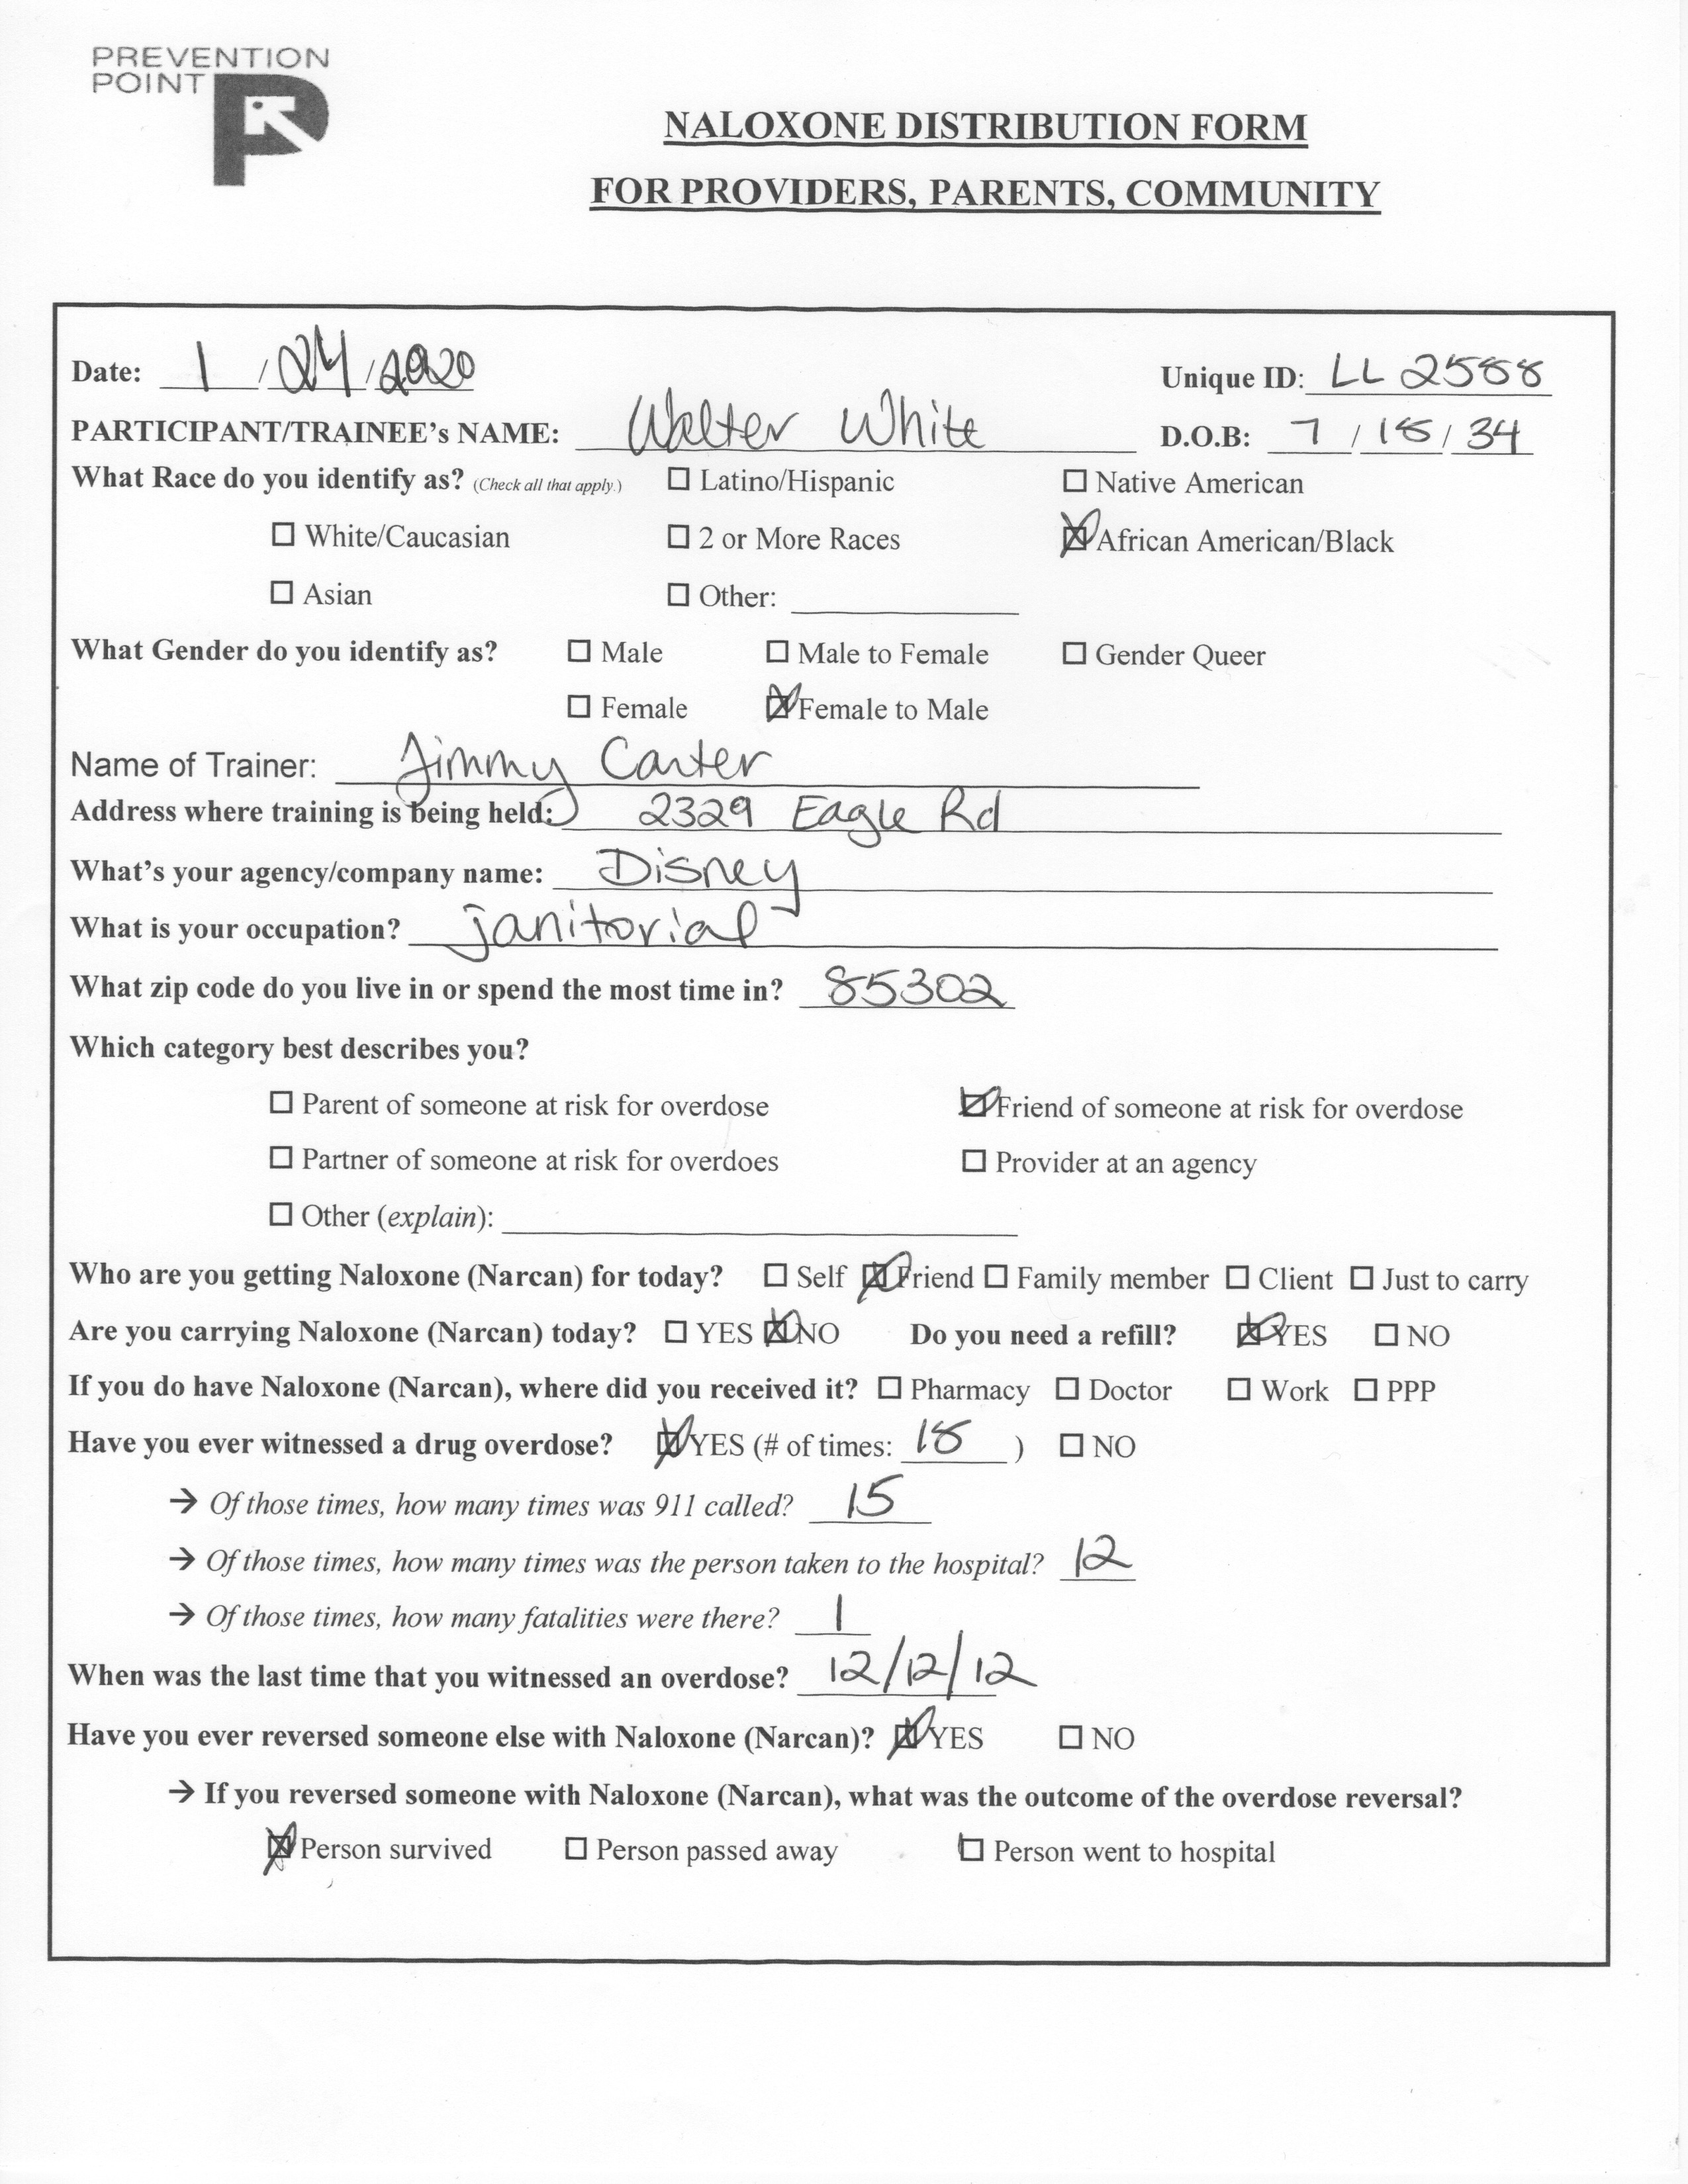 PREVENTION
POINT
NALOXONE DISTRIBUTION FORM
FOR PROVIDERS, PARENTS, COMMUNITY
Date: 1 / 24 / 2020 Unique ID: LL 2588
PARTICIPANT/TRAINEE's NAME: Walter White D.O.B: 7 / 18 / 34
What Race do you identify as? (Check all that apply.) ☐ Latino/Hispanic ☐ Native American
☐ White/Caucasian ☐ 2 or More Races ☒ African American/Black
☐ Asian ☐ Other:
What Gender do you identify as? ☐ Male ☐ Male to Female ☐ Gender Queer
☐ Female ☒ Female to Male
Name of Trainer: Jimmy Carter
Address where training is being held: 2329 Eagle Rd
What's your agency/company name: Disney
What is your occupation? janitorial
What zip code do you live in or spend the most time in? 85302
Which category best describes you?
☐ Parent of someone at risk for overdose ☒ Friend of someone at risk for overdose
☐ Partner of someone at risk for overdoes ☐ Provider at an agency
☐ Other (explain):
Who are you getting Naloxone (Narcan) for today? ☐ Self ☒ Friend ☐ Family member ☐ Client ☐ Just to carry
Are you carrying Naloxone (Narcan) today? ☐ YES ☒ NO Do you need a refill? ☒ YES ☐ NO
If you do have Naloxone (Narcan), where did you received it? ☐ Pharmacy ☐ Doctor ☐ Work ☐ PPP
Have you ever witnessed a drug overdose? ☒ YES (# of times: 18 ) ☐ NO
→ Of those times, how many times was 911 called? 15
→ Of those times, how many times was the person taken to the hospital? 12
→ Of those times, how many fatalities were there? 1
When was the last time that you witnessed an overdose? 12/12/12
Have you ever reversed someone else with Naloxone (Narcan)? ☒ YES ☐ NO
→ If you reversed someone with Naloxone (Narcan), what was the outcome of the overdose reversal?
☒ Person survived ☐ Person passed away ☐ Person went to hospital